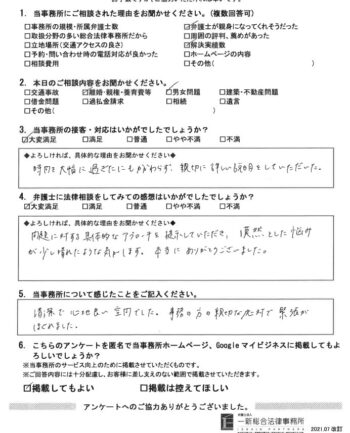 1. 当事務所にご相談された理由をお聞かせください。(複数回答可)
□事務所の規模・所属弁護士数 ☑弁護士が親身になってくれそうだった
□取扱分野の多い総合法律事務所だから □周囲の評判、薦めがあった
□立地場所(交通アクセスの良さ) ☑解決実績数
□予約・問い合わせ時の電話対応が良かった □ホームページの内容
□相談費用 □その他( )
2. 本日のご相談内容をお聞かせください。
□交通事故 ☑離婚・親権・養育費等 ☑男女問題 □建築・不動産問題
□借金問題 □過払金請求 □相続 □遺言
□その他( )
3. 当事務所の接客・対応はいかがでしたでしょうか?
☑大変満足 □満足 □普通 □やや不満 □不満
◆よろしければ、具体的な理由をお聞かせください◆
時間を大幅に過ぎたにもかかわらず、親切に詳しい説明をしていただいた。
4. 弁護士に法律相談をしてみての感想はいかがでしたでしょうか?
☑大変満足 □満足 □普通 □やや不満 □不満
◆よろしければ、具体的な理由をお聞かせください◆
問題に対する具体的なアプローチを提示していただき、漠然とした悩み
が少し晴れたような気がします。本当にありがとうございました。
5. 当事務所について感じたことをご記入ください。
清潔で心地良い空間でした。事務の方の親切な応対で緊張が
ほぐれました。
6. こちらのアンケートを匿名で当事務所ホームページ、Googleマイビジネスに掲載してもよ
ろしいでしょうか?
※当事務所のサービス向上のために掲載させていただくものです。
※ご回答内容には十分配慮し、お客様に差し支えのない範囲で掲載させていただきます。
☑掲載してもよい □掲載は控えてほしい
アンケートへのご協力ありがとうございました。
弁護士法人
一新総合法律事務所
2021.07改訂